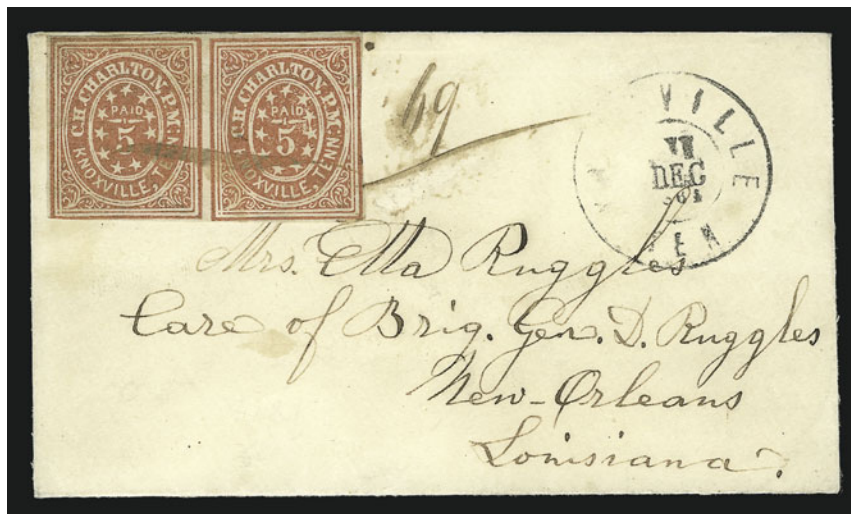 C.H. CHARLTON. P.M.
PAID
5
KNOXVILLE, TENN.
C.H. CHARLTON. P.M.
PAID
5
KNOXVILLE, TENN.
69
VILLE
11
DEC
TEN
Mrs. Ella Ruggles
Care of Brig. Gen. D. Ruggles
New-Orleans
Louisiana.